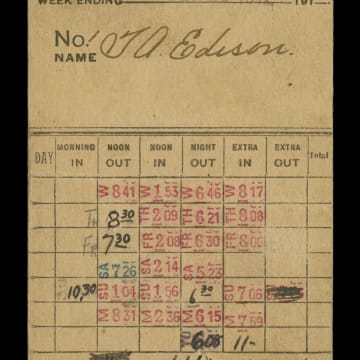 WEEK ENDING 191
No.1
NAME T A. Edison.
DAY MORNING IN NOON OUT NOON IN NIGHT OUT EXTRA IN EXTRA OUT Total
W 8 41 W 1 53 W 6 46 W 8 17
TH 8 30 TH 2 09 TH 6 21 TH 8 08
FR 7 30 FR 2 08 FR 6 30 FR 8 06
SA 7 26 SA 2 14 SA 5 23
10,30 SU 1 04 SU 1 56 6 30 SU 7 06
M 8 31 M 2 36 M 6 15 M 7 59
6 08 11-